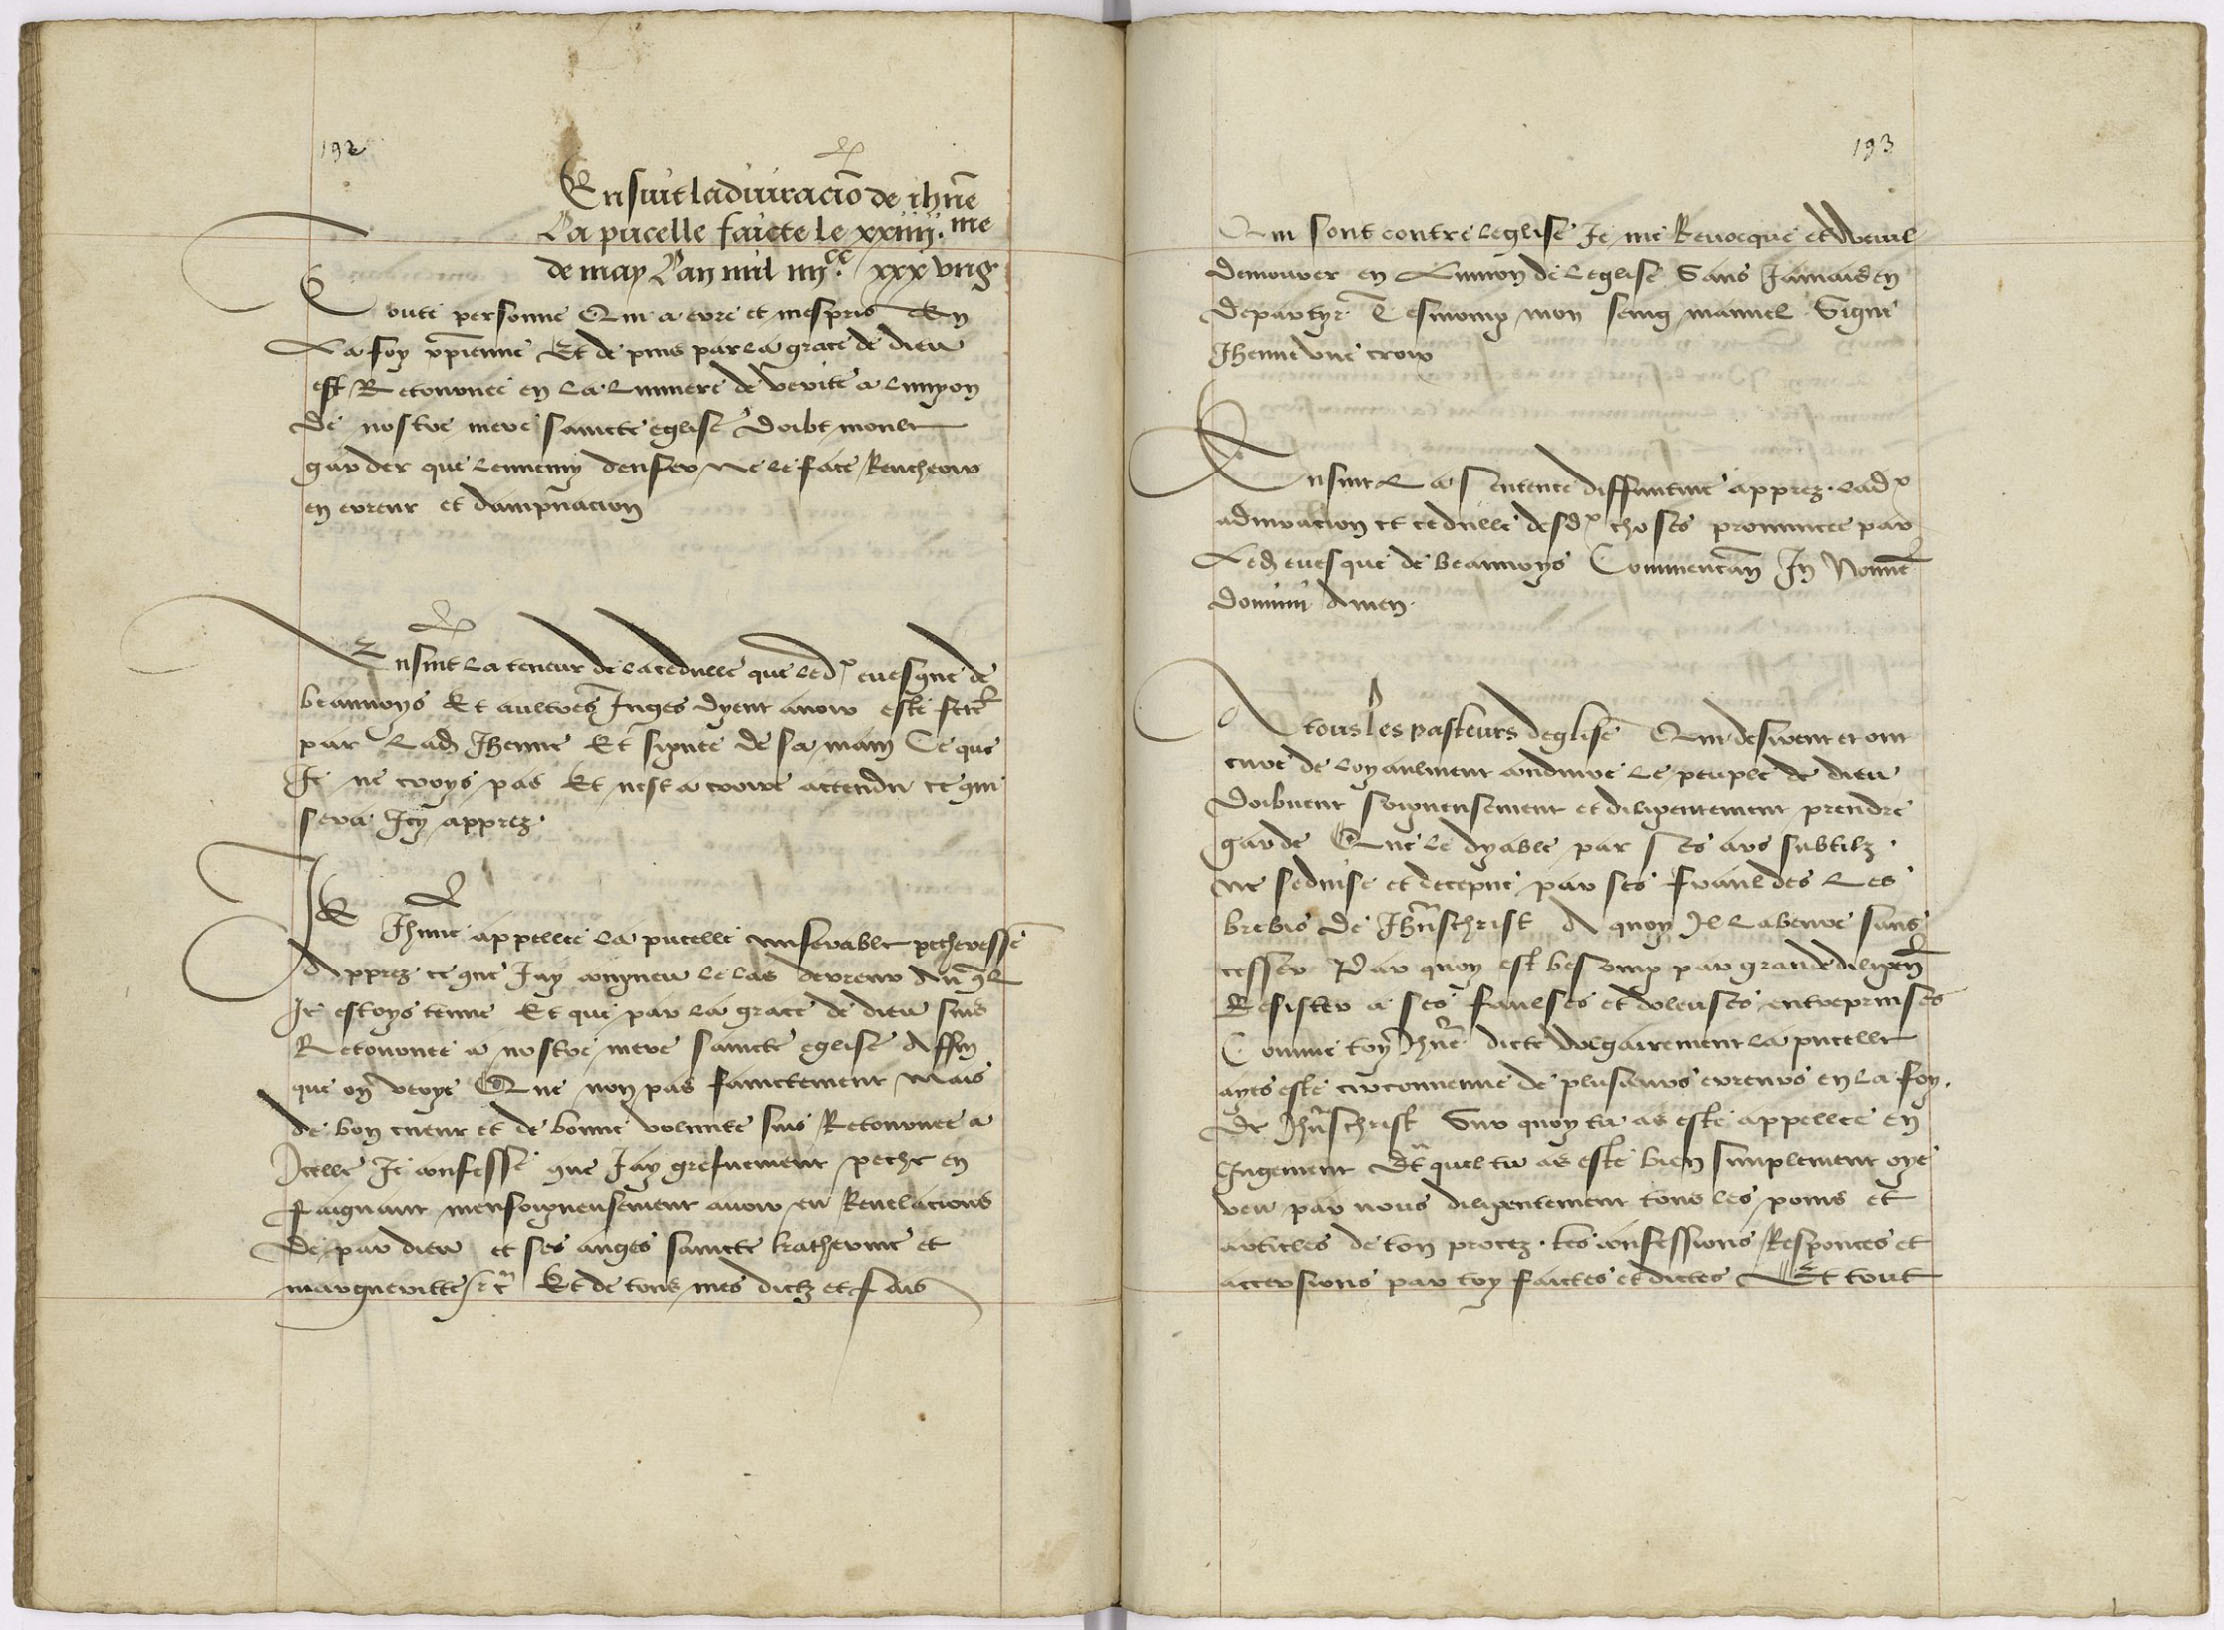 192
Ensuit ladiuracio de ihne
La pucelle faicte le xxiiii. me
de may Lan mil iiii cc xxx ung
Toute personne Qui a erre et mespris En
La foy xpienne Et de puis par la grace de dieu
est Retournee en la lumiere de verite a lunyon
de nostre mere saincte eglise Doibt moult
garder que lennemy denfer ne le face Rencheoir
en erreur et dampnacion
Ensuit la teneur de la cedulle que led. euesque de
beauuoys Et aultres Juges dyent auoir este fcte
par Lad Jhenne Et signee de sa main Ce que
Je ne croys pas Et nest a croire attendu ce qui
sera Icy apprez.
Je Jhenne appellee la pucelle miserable pecheresse
Apprez ce que Jay congneu le las derreur Auql
Je estoys tenue Et que par la grace de dieu suis
Retournee a nostre mere saincte eglise Affin
que on veoye Que non pas fainctement Mais
de bon cueur et de bonne volunte suis Retournee a
Icelle Je confesse que Jay griefuement peche en
faignant mensongneusement auoir eu Reuelacions
de par dieu et ses anges saincte katherine et
margueritte etc Et de tous mes dictz et fais
193
Qui sont contre leglise Je me Reuocque et vueil
demourer en Lunion de leglise Sans Jamais en
departyr Tesmoing mon seing manuel Signe
Jhenne une croix
Ensuit La sentence diffinitiue apprez lad.
adiuracion et cedulle desd. choses pronuncee par
Led euesque de beauuoys Commencan In Nomine
domini Amen.
A tous les pasteurs deglise Qui desirent et ont
cure de loyaulment conduire Le peuple de dieu
Doibuent songneusement et diligentement prendre
garde Que le dyable par ses ars subtilz.
ne seduise et decepue par ses frauldes Les
brebis de Jhuschrist A quoy Il Labeure sans
cesser Par quoy est besoing par grande diligence
Resister a ses faulses et doleuses entreprinses
Comme toy Jhne dicte vulgairement la pucelle
ayes este circonuenue de plusieurs erreurs en la foy.
De Jhuschrist Sur quoy tu as este appellee en
Jugement Du quel tu as este bien simplement oye
veu par nous diligentement tous les poins et
articles de ton procez. tes confessions Responces et
accersions par toy faictes et dictes Et tout